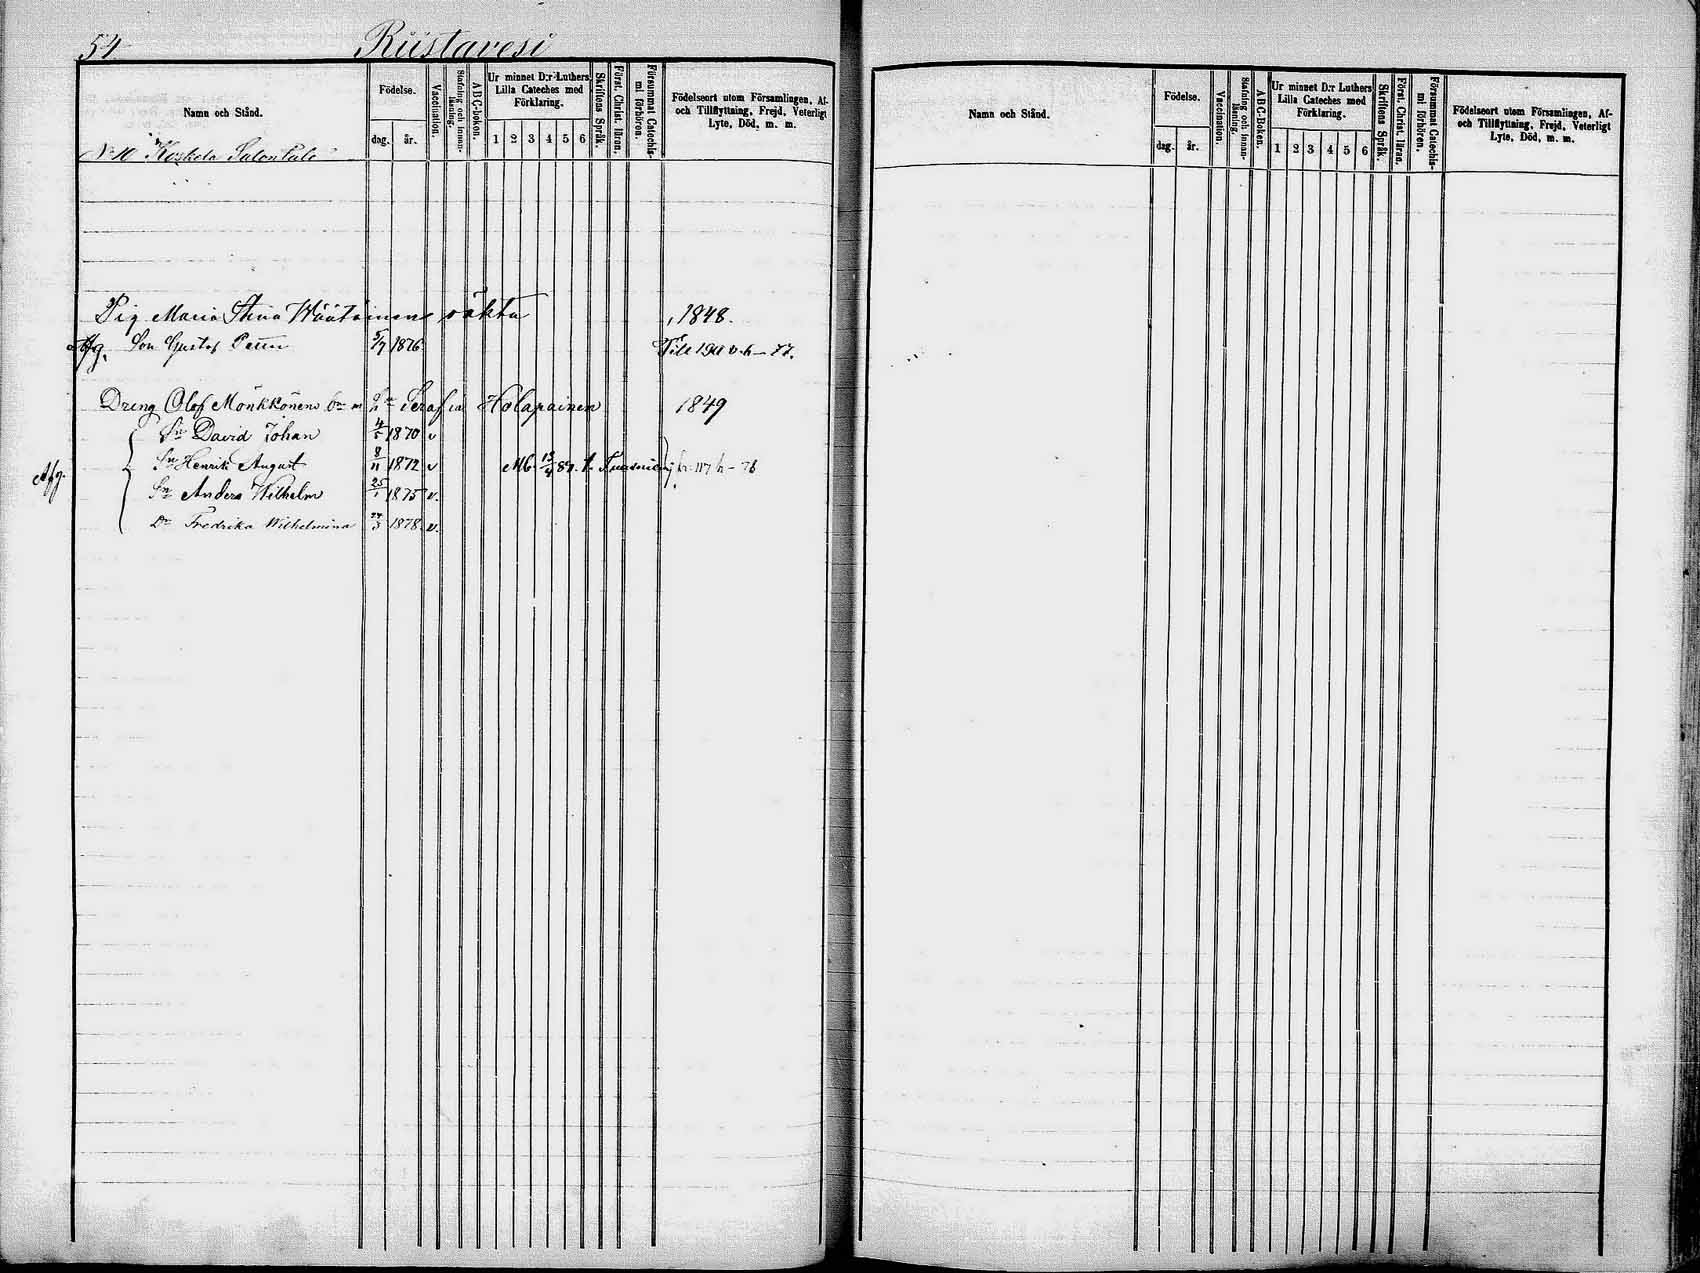 54.
Riistavesi
Namn och Stånd.
Födelse.
dag. år.
Vaccination.
Stafning och innan-läsning.
A B C-boken.
Ur minnet D:r Luthers Lilla Cateches med Förklaring.
1 2 3 4 5 6
Skriftens Språk.
Först. Christ. läran.
Försummat Catechis-mi förhören.
Födelseort utom Församlingen, Af- och Tillflyttning, Frejd, Veterligt Lyte, Död, m. m.
No 10 Koskela
Pig Maria Stina Väätäinen oäkta , 1848.
Afg. Son Gustaf Petter 5/7 1876 Till 190 v. h - 77.
Dreng Olof Mönkkönens Serafia Holapainen 1849
Sn David Johan 4/5 1870 v
Afg. Sn Henrik August 8/11 1872 v Mb. 84. t. fr. 117 h - 76
Sn Anders Wilhelm 25/1 1875 v.
Dr Fredrika Wilhelmina 1878. v.
Namn och Stånd.
Födelse.
dag. år.
Vaccination.
Stafning och innan-läsning.
A-B-C-Boken.
Ur minnet D:r Luthers Lilla Cateches med Förklaring.
1 2 3 4 5 6
Skriftens Språk.
Först. Christ. läran.
Försummat Catechis-mi förhören.
Födelseort utom Församlingen, Af- och Tillflyttning, Frejd, Veterligt Lyte, Död, m. m.